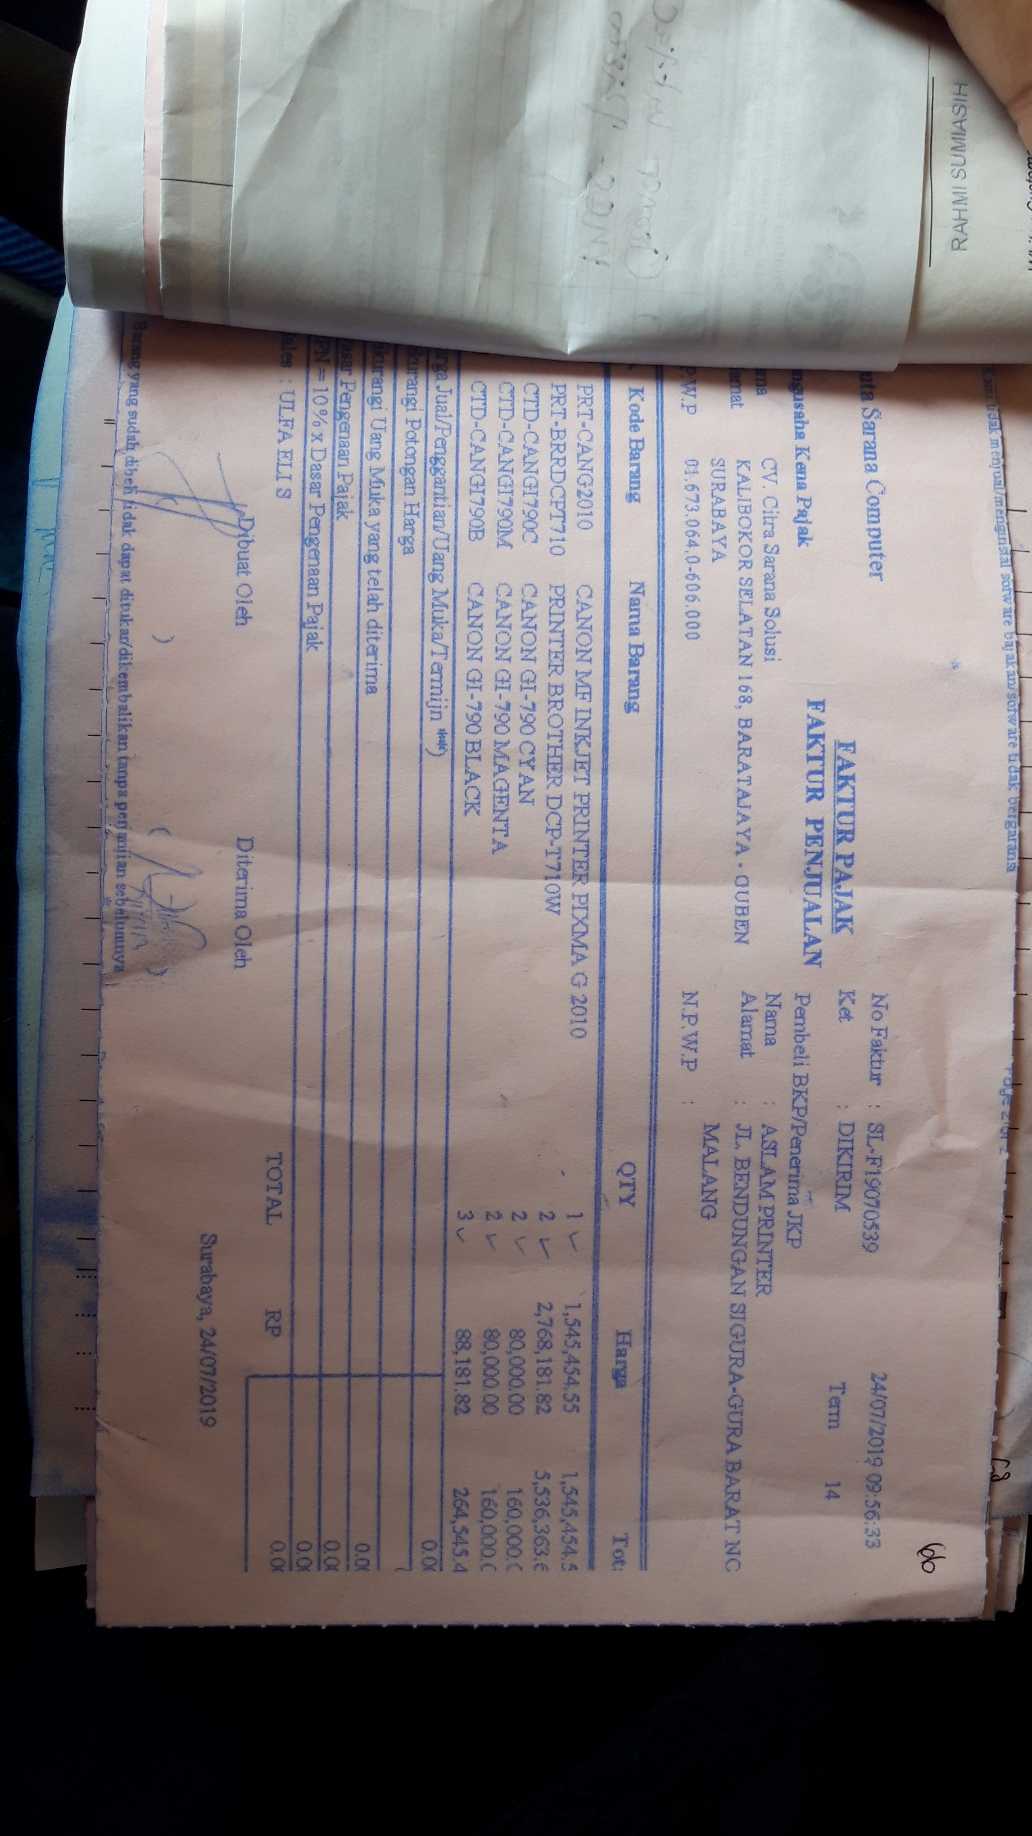 RAHMI SUMIASIH
66
Sarana Computer
FAKTUR PAJAK
FAKTUR PENJUALAN
No Faktur : SL-F19070539 24/07/2019 09:56:33
Ket : DIKIRIM Term 14
Kena Pajak
Pembeli BKP/Penerima JKP
CV. Citra Sarana Solusi
Nama : ASLAM PRINTER
KALIBOKOR SELATAN 168, BARATAJAYA - GUBEN
SURABAYA
Alamat : JL. BENDUNGAN SIGURA-GURA BARAT NC
MALANG
P.W.P 01.673.064.0-606.000
N.P.W.P :
Kode Barang Nama Barang QTY Harga Tot
PRT-CANG2010 CANON MF INKJET PRINTER PIXMA G 2010 1 1,545,454.55 1,545,454.5
PRT-BRRDCPT710 PRINTER BROTHER DCP-T710W 2 2,768,181.82 5,536,363.6
CTD-CANGI790C CANON GI-790 CYAN 2 80,000.00 160,000.0
CTD-CANGI790M CANON GI-790 MAGENTA 2 80,000.00 160,000.0
CTD-CANGI790B CANON GI-790 BLACK 3 88,181.82 264,545.4
rga Jual/Penggantian/Uang Muka/Termijn **) 0.0
kurangi Potongan Harga
kurangi Uang Muka yang telah diterima 0.0
asar Pengenaan Pajak 0.0
PN = 10% x Dasar Pengenaan Pajak 0.0
ales : ULFA ELIS TOTAL RP 0.0
Dibuat Oleh Diterima Oleh
Surabaya, 24/07/2019
Barang yang sudah dibeli tidak dapat ditukar/dikembalikan tanpa perjanjian sebelumnya